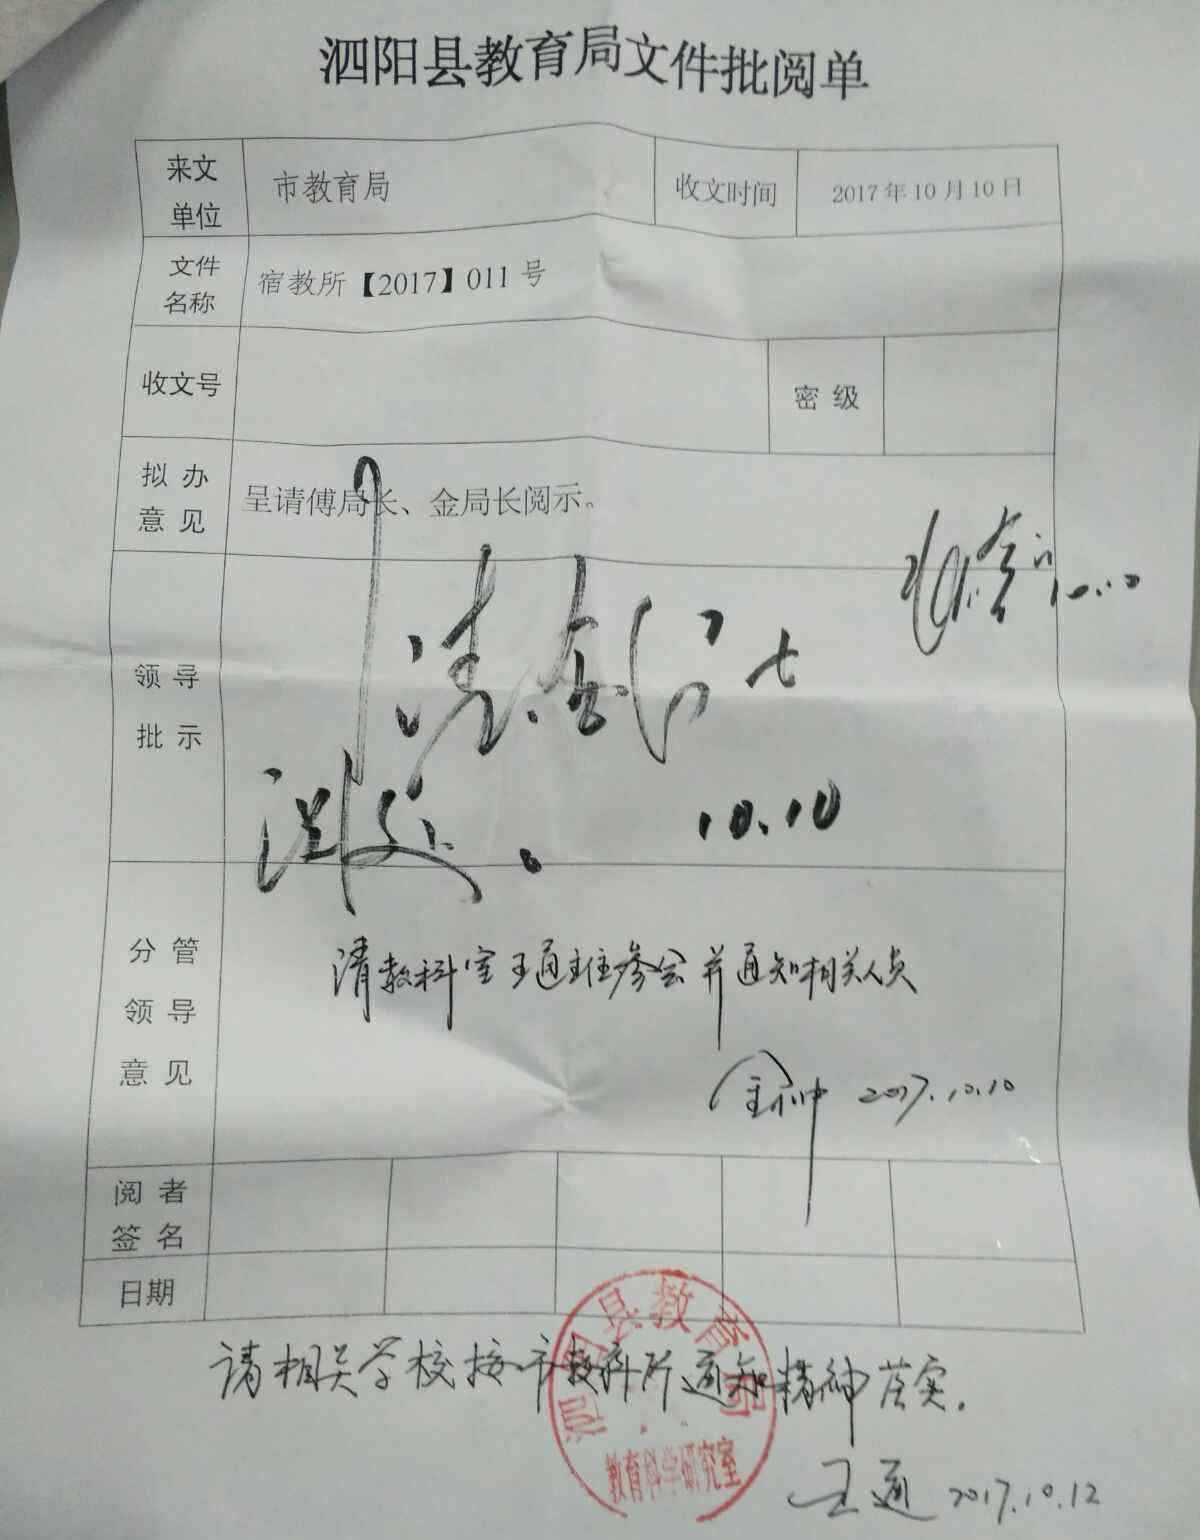 泗阳县教育局文件批阅单
来文单位 市教育局 收文时间 2017年10月10日
文件名称 宿教所【2017】011号
收文号 密级
拟办意见 呈请傅局长、金局长阅示。
领导批示
请金局长
阅处。 10.10
10.10
分管领导意见
请教科室王通主任参会并通知相关人员
2017.10.10
阅者签名
日期
请相关学校按市教科所通知精神落实。
王通 2017.10.12
泗阳县教育局
教育科学研究室